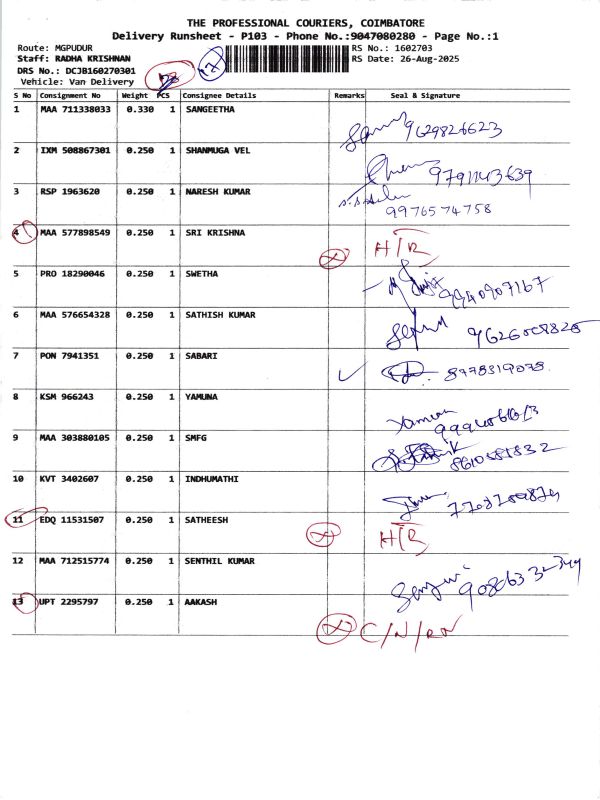 THE PROFESSIONAL COURIERS, COIMBATORE
Delivery Runsheet - P103 - Phone No.:9047080280 - Page No.:1
Route: MGPUDUR RS No.: 1602703
Staff: RADHA KRISHNAN RS Date: 26-Aug-2025
DRS No.: DCJB160270301
Vehicle: Van Delivery
S No Consignment No Weight PCS Consignee Details Remarks Seal & Signature
1 MAA 711338033 0.330 1 SANGEETHA
9629826623
2 IXM 508867301 0.250 1 SHANMUGA VEL
9791143639
3 RSP 1963620 0.250 1 NARESH KUMAR
9976574758
4 MAA 577898549 0.250 1 SRI KRISHNA
H/R
5 PRO 18290046 0.250 1 SWETHA
9940907167
6 MAA 576654328 0.250 1 SATHISH KUMAR
7 PON 7941351 0.250 1 SABARI
8778319078
8 KSM 966243 0.250 1 YAMUNA
9 MAA 303880105 0.250 1 SMFG
10 KVT 3402607 0.250 1 INDHUMATHI
11 EDQ 11531507 0.250 1 SATHEESH
H/R
12 MAA 712515774 0.250 1 SENTHIL KUMAR
13 UPT 2295797 0.250 1 AAKASH
C/N/RN